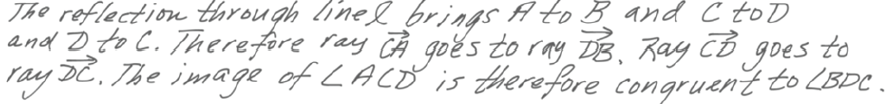 The reflection through line l brings A to B and C to D
and D to C. Therefore ray \overrightarrow{CA} goes to ray \overrightarrow{DB}. Ray \overrightarrow{CD} goes to
ray \overrightarrow{DC}. The image of ∠ACD is therefore congruent to ∠BDC.